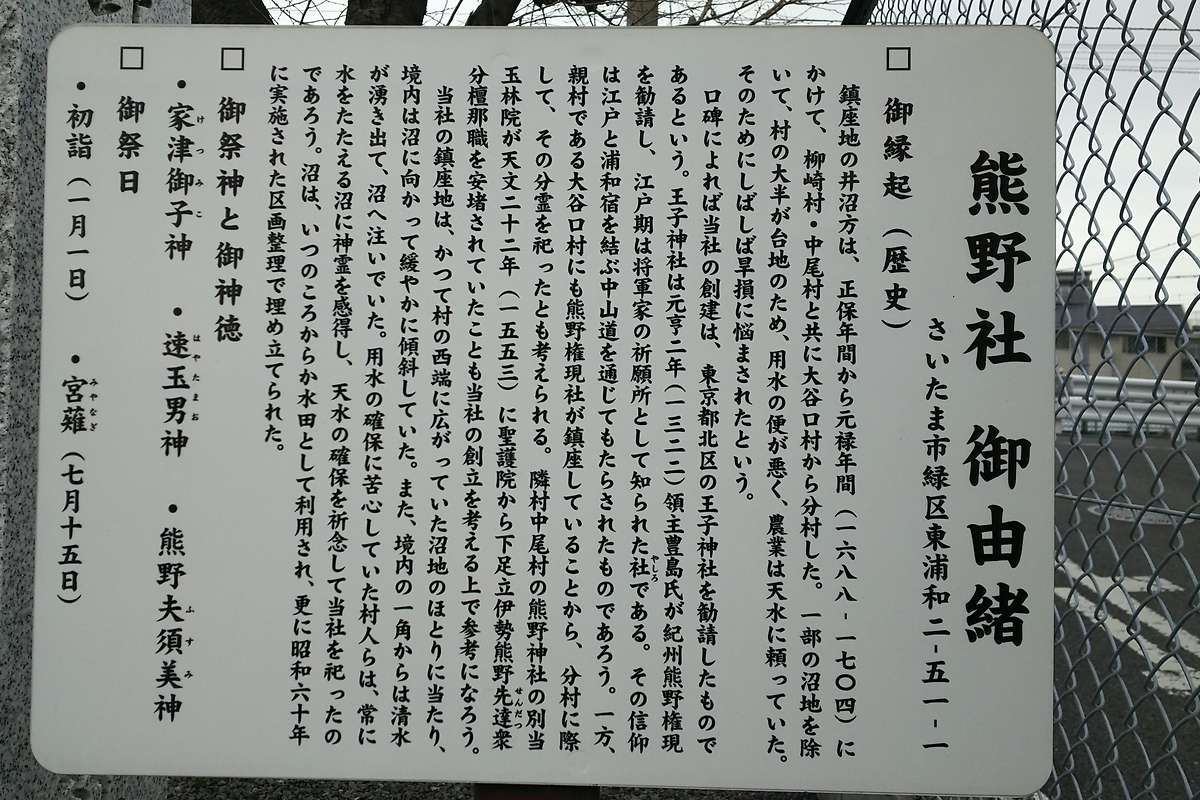 熊野社 御由緒
さいたま市緑区東浦和二-五一-一
□ 御縁起(歴史)
鎮座地の井沼方は、正保年間から元禄年間(一六八八-一七〇四)に
かけて、柳崎村・中尾村と共に大谷口村から分村した。一部の沼地を除
いて、村の大半が台地のため、用水の便が悪く、農業は天水に頼っていた。
そのためにしばしば旱損に悩まされたという。
口碑によれば当社の創建は、東京都北区の王子神社を勧請したもので
あるという。王子神社は元亨二年(一三二二)領主豊島氏が紀州熊野権現
を勧請し、江戸期は将軍家の祈願所として知られた社やしろである。その信仰
は江戸と浦和宿を結ぶ中山道を通じてもたらされたものであろう。一方、
親村である大谷口村にも熊野権現社が鎮座していることから、分村に際
して、その分霊を祀ったとも考えられる。隣村中尾村の熊野神社の別当
玉林院が天文二十二年(一五五三)に聖護院から下足立伊勢熊野先達せんだつ衆
分檀那職を安堵されていたことも当社の創立を考える上で参考になろう。
当社の鎮座地は、かつて村の西端に広がっていた沼地のほとりに当たり、
境内は沼に向かって緩やかに傾斜していた。また、境内の一角からは清水
が湧き出て、沼へ注いでいた。用水の確保に苦心していた村人らは、常に
水をたたえる沼に神霊を感得し、天水の確保を祈念して当社を祀ったの
であろう。沼は、いつのころからか水田として利用され、更に昭和六十年
に実施された区画整理で埋め立てられた。
□ 御祭神と御神徳
・家津御子けつみこ神 ・速玉男はやたまお神 ・熊野夫須美ふすみ神
□ 御祭日
・初詣(一月一日) ・宮薙みやなぎ(七月十五日)